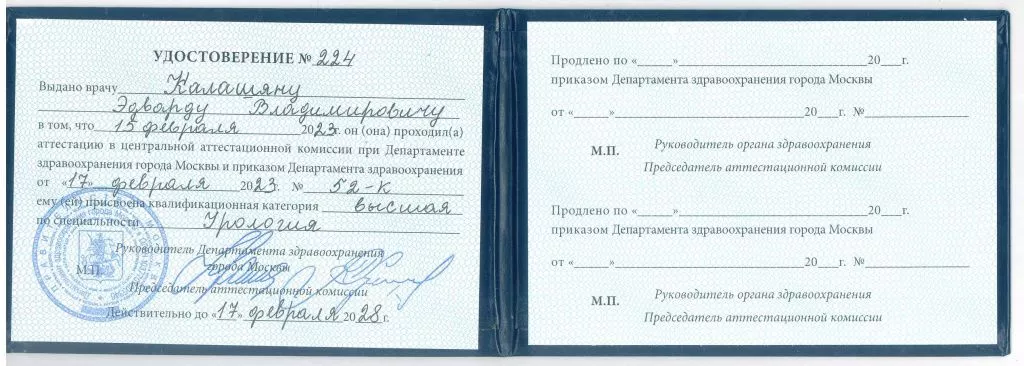 УДОСТОВЕРЕНИЕ № 224
Выдано врачу Калашяну
Эдварду Владимировичу
в том, что 15 февраля 2023г. он (она) проходил(а)
аттестацию в центральной аттестационной комиссии при Департаменте
здравоохранения города Москвы и приказом Департамента здравоохранения
от «17» февраля 2023г. № 52-к
ему (ей) присвоена квалификационная категория высшая
по специальности Урология
Руководитель Департамента здравоохранения
города Москвы
М.П.
Председатель аттестационной комиссии
Действительно до «17» февраля 2028г.
Продлено по «_____»____________________________20___г.
приказом Департамента здравоохранения города Москвы
от «_____»____________________________20___г. №_______________
М.П. Руководитель органа здравоохранения
Председатель аттестационной комиссии
Продлено по «_____»____________________________20___г.
приказом Департамента здравоохранения города Москвы
от «_____»____________________________20___г. №_______________
М.П. Руководитель органа здравоохранения
Председатель аттестационной комиссии